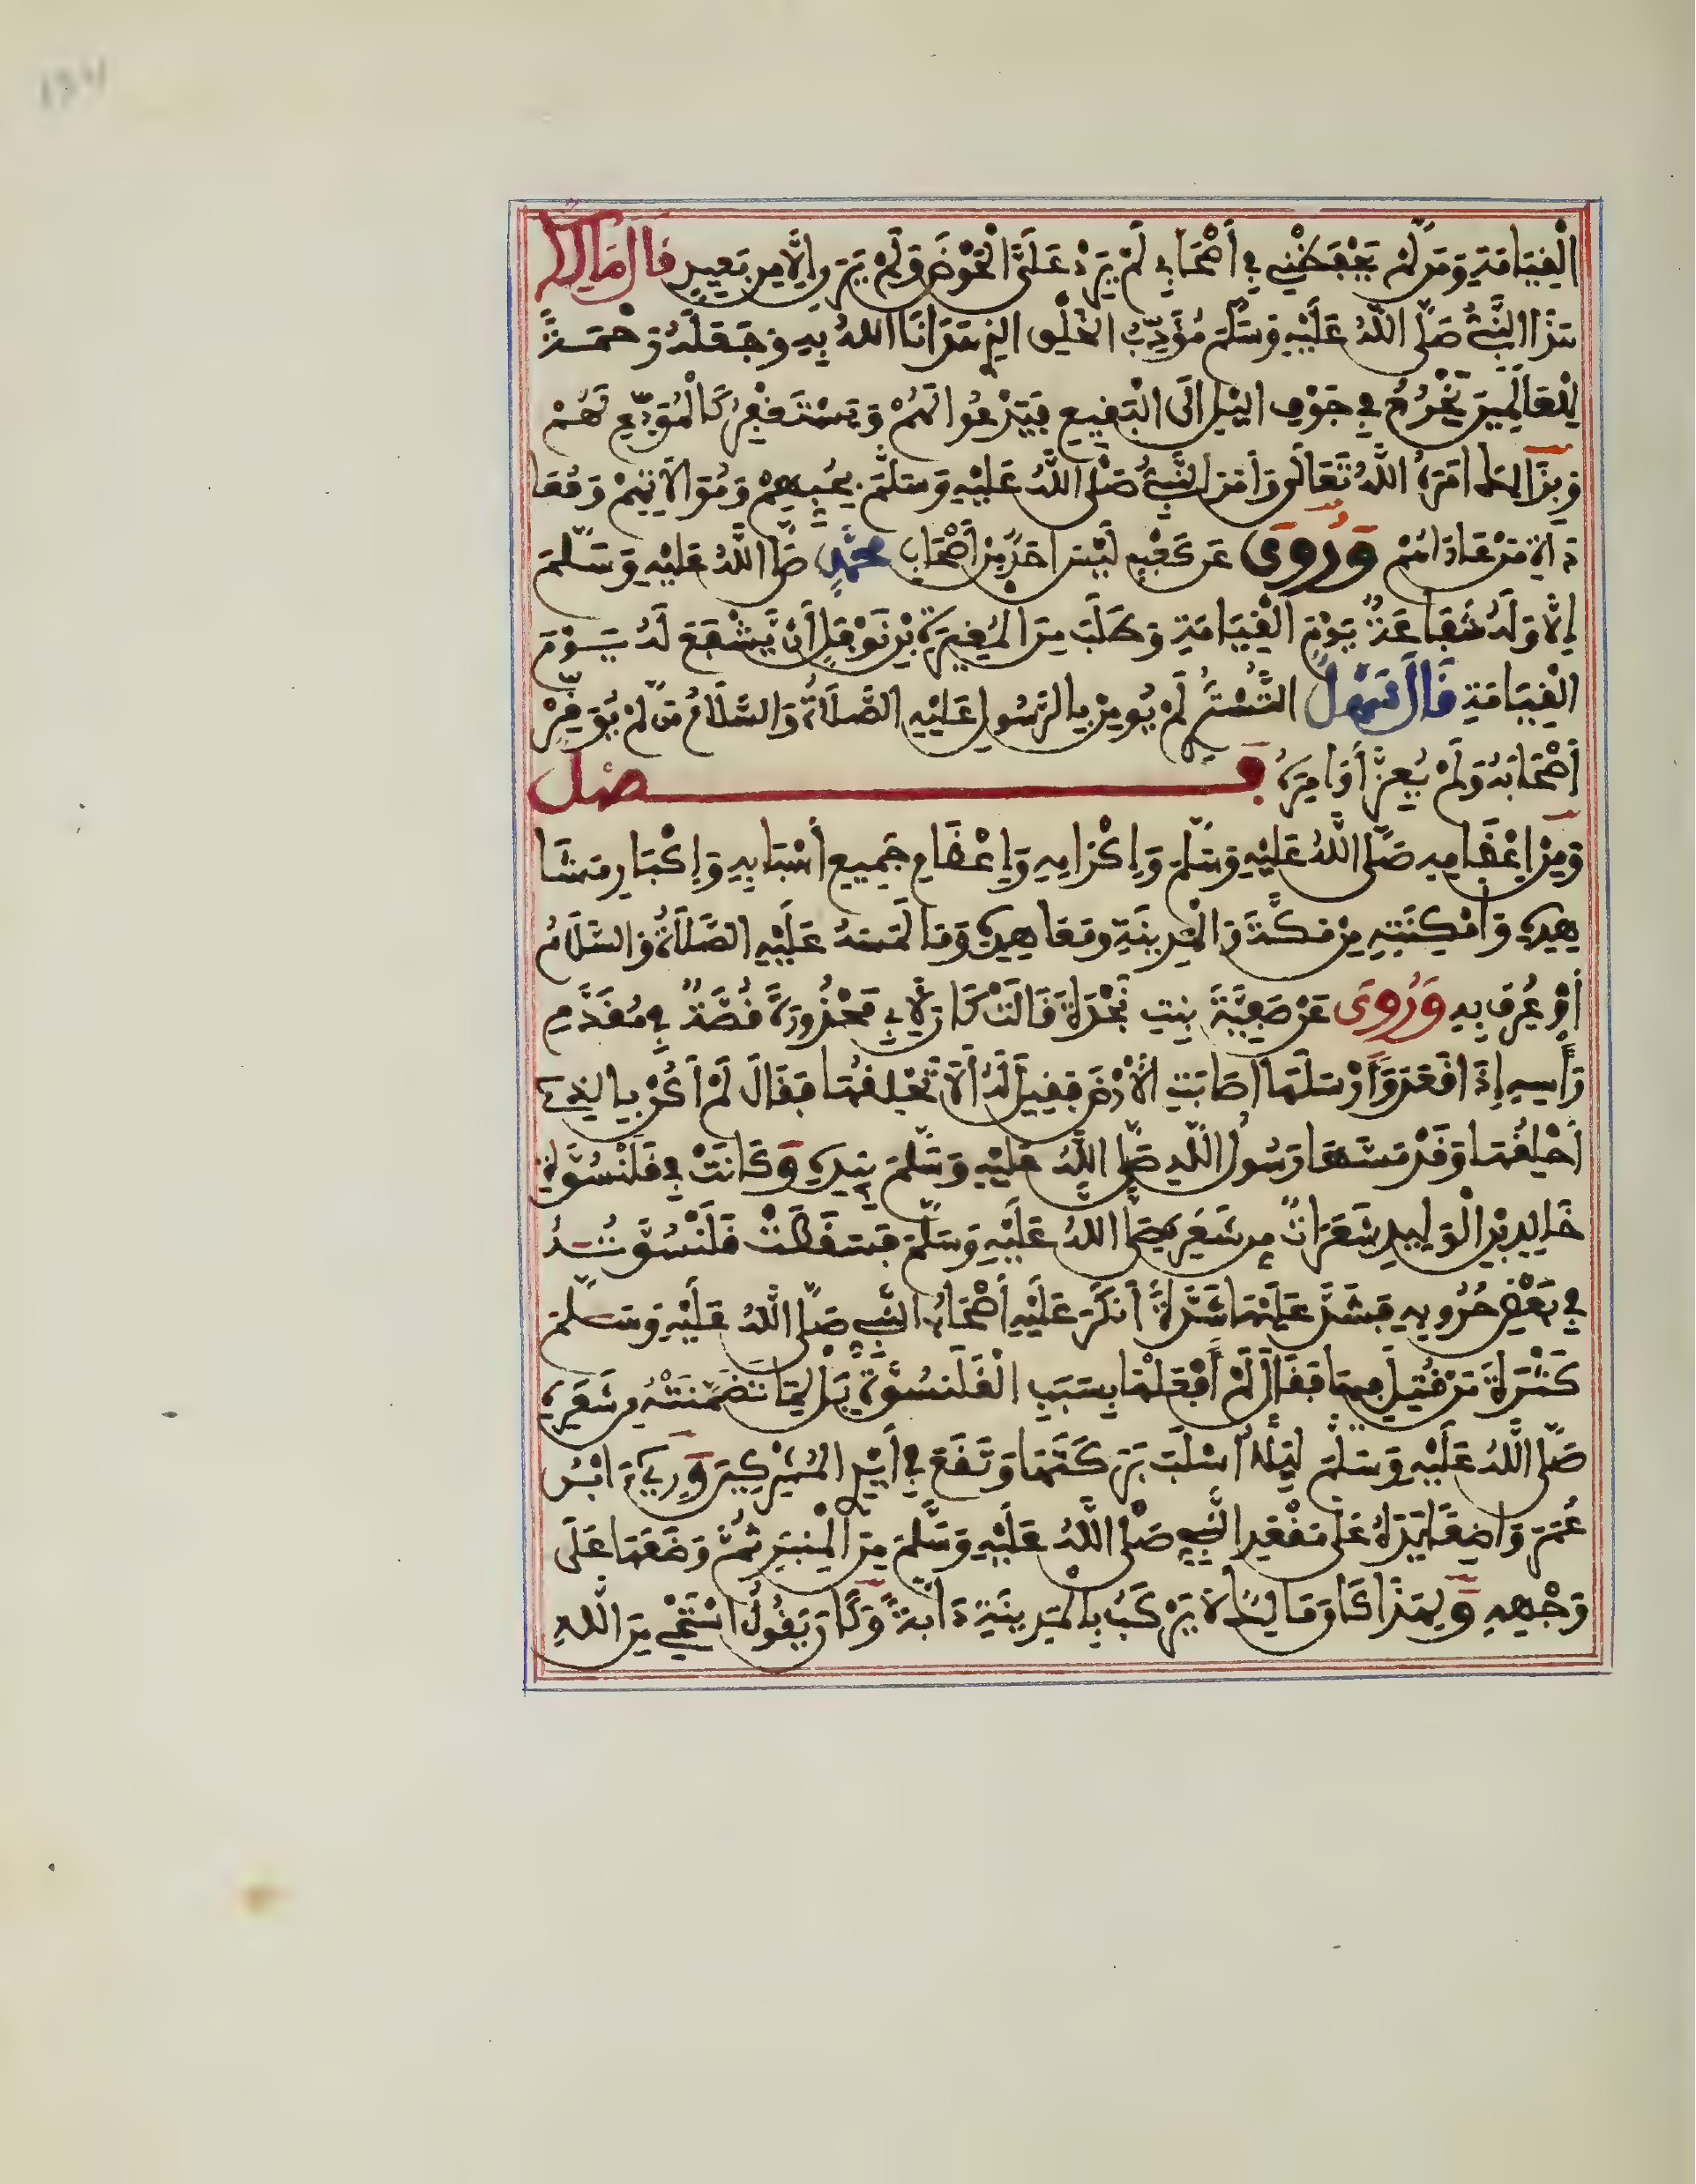 الْقِيَامَةِ وَمَن لَّمْ يَحْفَظْنِي فِي أَصْحَابِي لَمْ يَرِدْ عَلَيَّ الْحَوْضَ وَلَمْ يَرَنِي إِلَّا مِن بَعِيدٍ قَالَ مَالِكٌ
هَذَا النَّبِيُّ صَلَّى اللَّهُ عَلَيْهِ وَسَلَّمَ مُؤَدِّبُ الْخَلْقِ الَّذِي هَدَانَا اللهُ بِهِ وَجَعَلَهُ رَحْمَةً
لِلْعَالَمِينَ يَخْرُجُ فِي جَوْفِ اللَّيْلِ إِلَى الْبَقِيعِ فَيَدْعُوا لَهُمْ وَيَسْتَغْفِرُ كَالْمُوَدِّعِ لَهُمْ
وَبِذَالِكَ أَمَرَهُ اللَّهُ تَعَالَى وَأَمَرَ النَّبِيُّ صَلَّى اللَّهُ عَلَيْهِ وَسَلَّمَ بِحُبِّهِمْ وَمُوَالَاتِهِمْ وَمُعَا
دَاةِ مَنْ عَادَاهُمْ وَرُوِيَ عَن كَعْبٍ لَيْسَ أَحَدٌ مِّنْ أَصْحَابِ مُحَمَّدٍ صَلَّى اللَّهُ عَلَيْهِ وَسَلَّمَ
إِلَّا وَلَهُ شَفَاعَةٌ يَوْمَ الْقِيَامَةِ وَطَلَبَ مِنَ الْمُغِيرَةِ بْنِ نَوْفَلٍ أَنْ يَّشْفَعَ لَهُ يَوْمَ
الْقِيَامَةِ قَالَ سَهْلٌ التُّسْتَرِيُّ لَمْ يُومِنْ بِالرَّسُولِ عَلَيْهِ الصَّلَاةُ وَالسَّلَامُ مَن لَّمْ يُوَقِّرْ
أَصْحَابَهُ وَلَمْ يُعِزَّ أَوَامِرَهُ فصل
وَمِنْ إِعْظَامِهِ صَلَّى اللَّهُ عَلَيْهِ وَسَلَّمَ وَإِكْرَامِهِ وَإِعْظَامِ جَمِيعِ أَسْبَابِهِ وَإِكْبَارِ مَشَا
هِدِهِ وَأَمْكِنَتِهِ مِنْ مَكَّةَ وَالْمَدِينَةِ وَمَعَاهِدِهِ وَمَا لَمَسَهُ عَلَيْهِ الصَّلَاةُ وَالسَّلَامُ
أَوْ عُرِفَ بِهِ وَرُوِيَ عَنْ صَفِيَّةَ بِنْتِ نَجْدَةَ قَالَتْ كَانَ لِأَبِي مَحْذُورَةَ قُصَّةٌ فِي مُقَدَّمِ
رَأْسِهِ إِذَا قَعَدَ وَأَرْسَلَهَا أَصَابَتِ الْأَرْضَ فَقِيلَ لَهُ أَلَا تَحْلِقُهَا فَقَالَ لَمْ أَكُنْ بِالَّذِي
أَحْلِقُهَا وَقَدْ مَسَّهَا رَسُولُ اللَّهِ صَلَّى اللَّهُ عَلَيْهِ وَسَلَّمَ بِيَدِهِ وَكَانَتْ فِي قَلَنْسُوَةِ
خَالِدِ بْنِ الْوَلِيدِ شَعَرَاتٌ مِن شَعَرِهِ صَلَّى اللهُ عَلَيْهِ وَسَلَّمَ فَسَقَطَتْ قَلَنْسُوَتُهُ
فِي بَعْضِ حُرُوبِهِ فَشَدَّ عَلَيْهَا شَدَّةً أَنكَرَ عَلَيْهِ أَصْحَابُ النَّبِيِّ صَلَّى اللَّهُ عَلَيْهِ وَسَلَّمَ
كَثْرَةَ مَنْ قُتِلَ فِيهَا فَقَالَ لَمْ أَفْعَلْهَا بِسَبَبِ الْقَلَنْسُوَةِ بَلْ لِمَا تَضَمَّنَتْهُ مِن شَعَرِهِ
صَلَّى اللَّهُ عَلَيْهِ وَسَلَّمَ لِيَلَّا أُسْلَبَ بَرَكَتَهَا وَتَقَعَ فِي أَيْدِي الْمُشْرِكِينَ وَرِيءَ ابْنُ
عُمَرَ وَاضِعًا يَدَهُ عَلَى مَقْعَدِ النَّبِيِّ صَلَّى اللَّهُ عَلَيْهِ وَسَلَّمَ مِنَ الْمِنْبَرِ ثُمَّ وَضَعَهَا عَلَى
وَجْهِهِ وَلِهَذَا كَانَ مَالِكٌ لَا يَرْكَبُ بِالْمَدِينَةِ دَابَّةً وَكَانَ يَقُولُ أَسْتَحْيِي مِنَ اللَّهِ